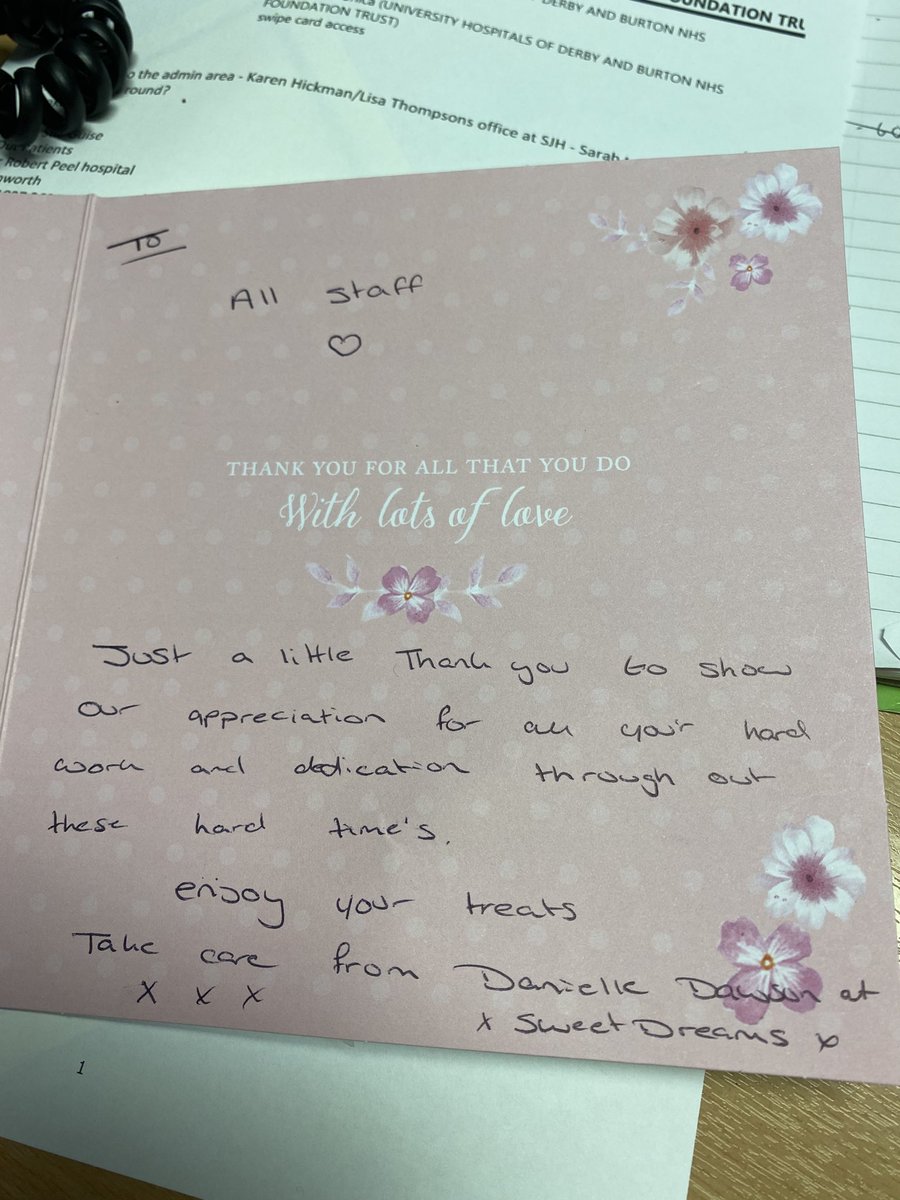 FOUNDATION TRU
(UNIVERSITY HOSPITALS OF DERBY AND BURTON NHS
DERBY AND BURTON NHS
FOUNDATION TRUST)
swipe card access
the admin area - Karen Hickman/Lisa Thompsons office at SJH - Sarah
round?
Robert Peel hospital
To
All staff
THANK YOU FOR ALL THAT YOU DO
With lots of love
Just a little Thank you to show
our appreciation for all your hard
work and dedication through out
these hard time's.
enjoy your treats
Take care from Danielle Dawson at
x x x
x Sweet Dreams x
1